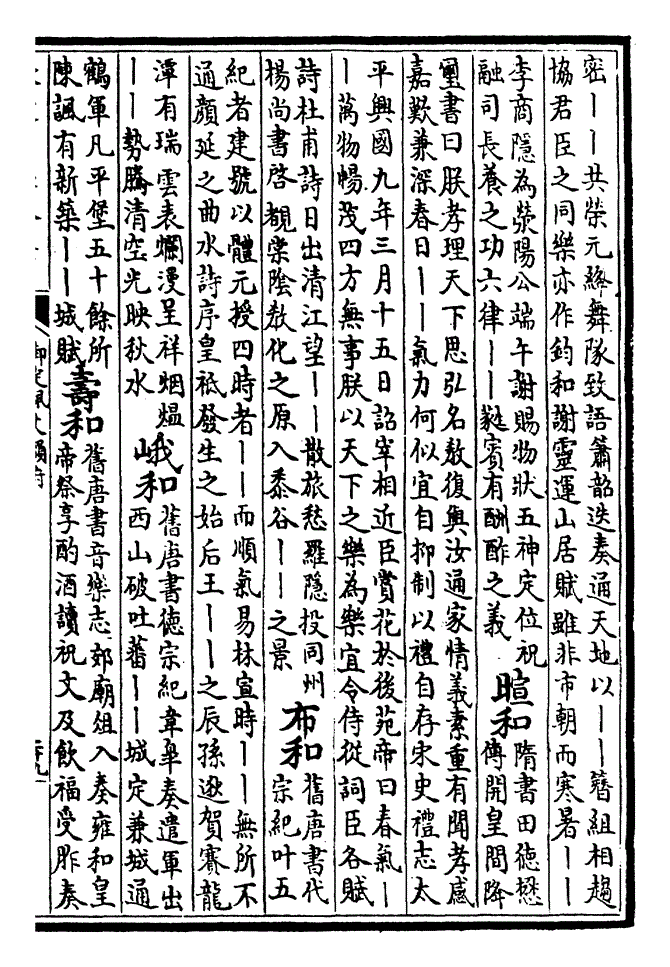 密――共榮元絳舞隊致語簫韶迭奏通天地以――簪組相趨
協君臣之同樂亦作鈞和謝靈運山居賦雖非市朝而寒暑――
李商隱為滎陽公端午謝賜物狀五神定位祝
融司長養之功六律――蕤賓有酬酢之義
暄和
隋書田德懋
傳開皇間降
璽書曰朕孝理天下思弘名敎復與汝通家情義素重有聞孝感
嘉歎兼深春日――氣力何似宜自抑制以禮自存宋史禮志太
平興國九年三月十五日詔宰相近臣賞花於後苑帝曰春氣―
―萬物暢茂四方無事朕以天下之樂為樂宜令侍從詞臣各賦
詩杜甫詩日出清江望――散旅愁羅隱投同州
楊尚書啓覩棠陰敎化之原入黍谷――之景
布和
舊唐書代
宗紀叶五
紀者建號以體元授四時者――而順氣易林宣時――無所不
通顏延之曲水詩序皇祗發生之始后王――之辰孫逖賀賽龍
潭有瑞雲表爛漫呈祥烟熅
――勢騰清空光映秋水
峨和
舊唐書德宗紀韋臯奏遣軍出
西山破吐蕃――城定兼城通
鶴軍凡平堡五十餘所
陳諷有新築――城賦
壽和
舊唐書音樂志郊廟俎入奏雍和皇
帝祭享酌酒讀祝文及飲福受胙奏